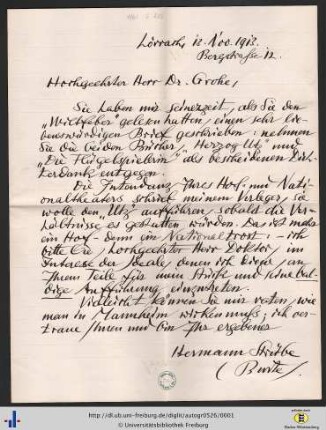 Lörrach, 12. Nov. 1913.
Bergstraße 12.
Hochgeehrter Herr Dr. Grohe,
Sie haben mir seinerzeit, als Sie den
"Wiltfeber" gelesen hatten, einen sehr lie-
benswürdigen Brief geschrieben: nehmen
Sie die beiden Bücher, "Herzog Utz" und
"Die Flügelspielerin" als bescheidenen Dich-
terdank entgegen.
Die Intendanz Ihres Hof- und Natio-
naltheaters schrieb meinem Verleger, sie
wolle den "Utz" aufführen, sobald die Ver-
hältnisse es gestatten würden. Das ist mehr
ein Hof- denn ein Nationaltrost – ich
bitte Sie, hochgeehrter Herr Doktor, im
Interesse der Ideale, denen ich diene, an
Ihrem Teile für mein Stück und seine bal-
dige Aufführung einzutreten.
Vielleicht können Sie mir raten, wie
man in Mannheim wirken muß; ich ver-
traue Ihnen und bin Ihr ergebener
Hermann Strübe
(Burte)
http://dl.ub.uni-freiburg.de/diglit/autogr0526/0001
© Universitätsbibliothek Freiburg